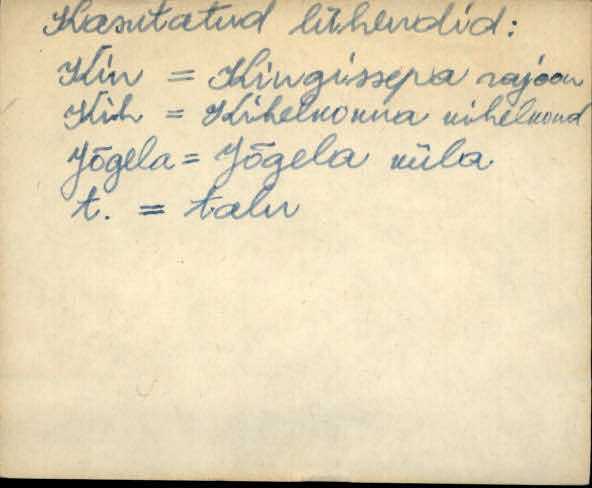 Kasutatud lühendid:
Kin = Kingissepa rajoon
Kih = Kihelkonna kihelkond
Jõgela = Jõgela küla
t. = talu